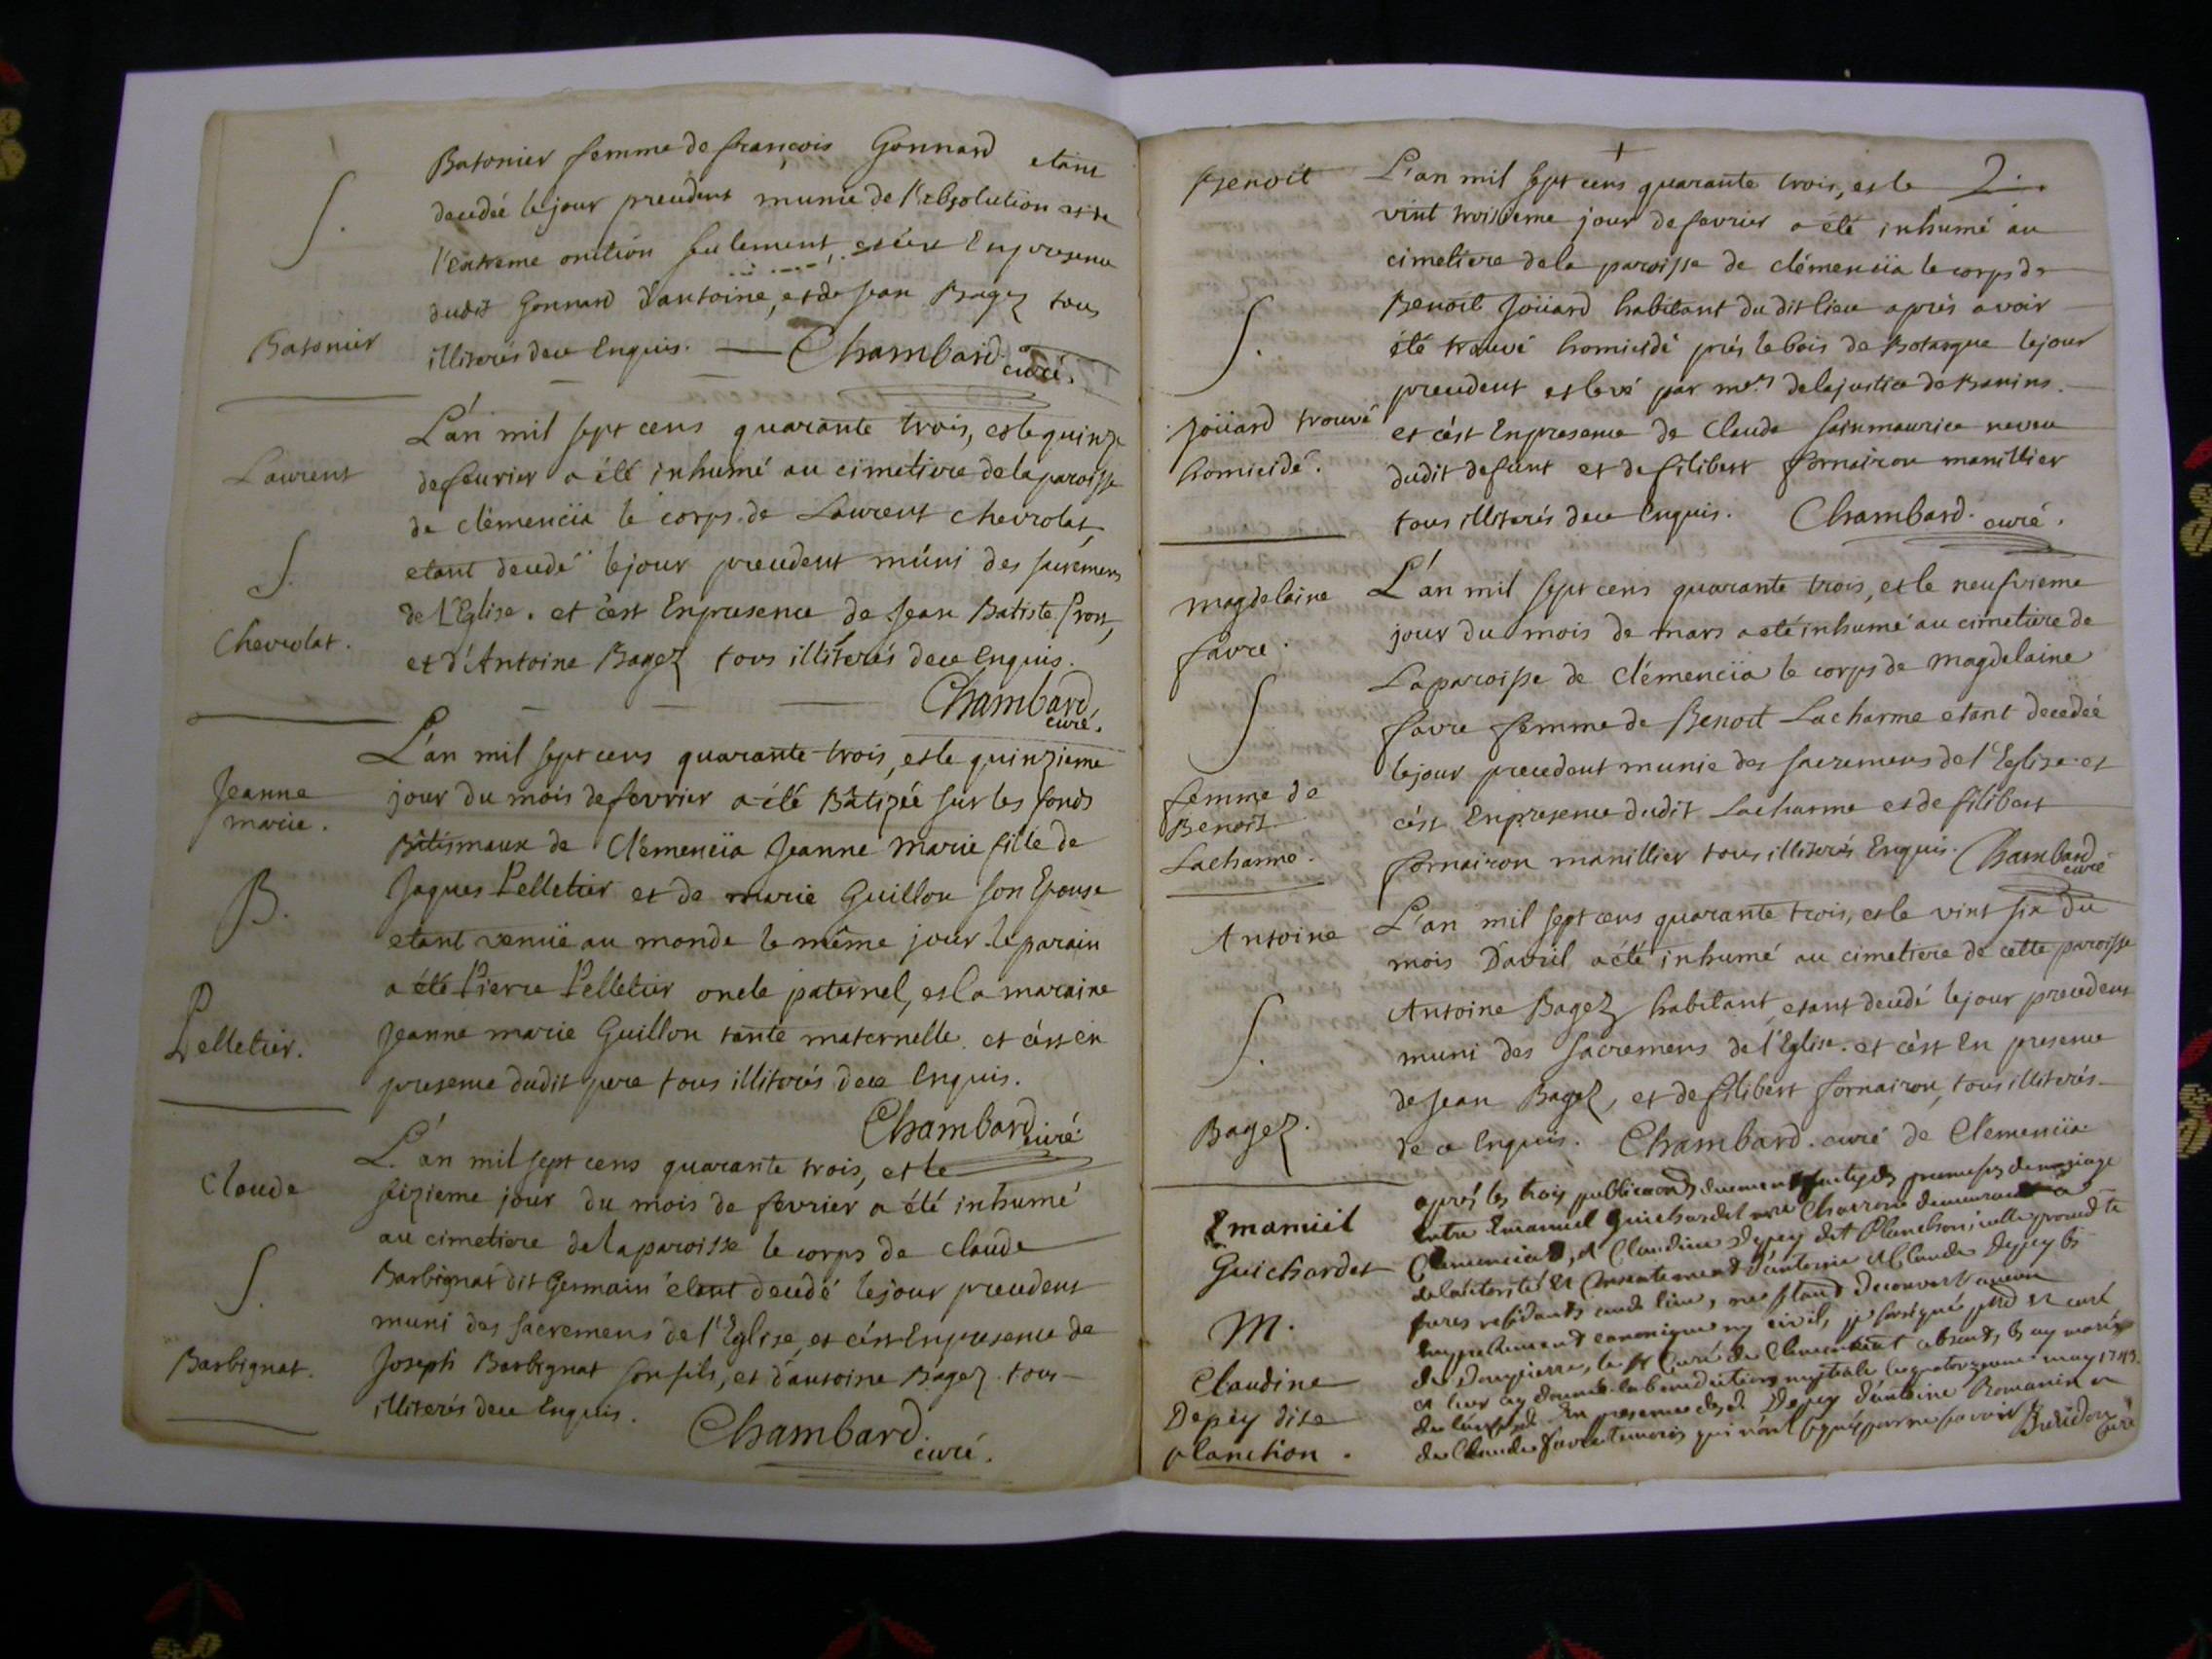 Batonier femme de françois Gonnard etant
decedeé le jour precedent munie de l'absolution et de
l'extreme onction seulement, et c'est En presence
dudit Gonnard d'antoine, et de Jean Bagez tous
Batonier
illiterés de ce Enquis. — Chambard curé.
Laurent
L'an mil sept cens quarante trois, et le quinze
de feurier a été inhumé au cimetiere de la paroisse
de clémencïa le corps de Laurent chevrolat,
S.
etant decedé le jour precedent múni des sacrémens
de l'Eglise. et c'est En presence de Jean Batiste
Chevrolat.
et d'Antoine Bagez tous illiterés de ce Enquis.
Chambard
curé.
L'an mil sept cens quarante trois, et le quinzieme
Jeanne
marie.
jour du mois de fevrier a été Bâtizée sur les fonds
Bâtismaux de Clémencïa Jeanne marie fille de
B.
Jaques Pelletier et de marie Guillon son Epouse
etant venuë au monde le même jour. le parain
a été Pierre Pelletier oncle paternel, et la maraine
Pelletier.
Jeanne marie Guillon tante maternelle. et c'est en
presence dudit pere tous illiterés de ce Enquis.
Chambard curé
Claude
L'an mil sept cens quarante trois, et le
seizieme jour du mois de fevrier a été inhumé
au cimetiere de la paroisse le corps de claude
S.
Barbignat dit Germain étant decedé le jour precedent
muni des sacremens de l'Eglise, et c'est En presence de
Barbignat.
Joseph Barbignat son fils, et d'antoine Bagez tous
illiterés de ce Enquis.
Chambard.
curé.
2.
Benoit
L'an mil sept cens quarante trois, et le
vint troisieme jour de favrier a été inhumé au
cimetiere de la paroisse de clémencïa le corps de
S.
Benoit Joüard habitant du dit lieu aprés avoir
été trouvé homicidé prés le bois de Botasque le jour
precedent et levé par mrs de la justice de Banins.
Joüard trouvé
homicidé.
et c'est En presence de Claude Sainmaurice neveu
dudit defunt et de filibert fornairon manillier
tous illiterés de ce Enquis. Chambard. curé.
magdelaine
favre.
L'an mil sept cens quarante trois, et le neufvieme
jour du mois de mars a eté inhumé au cimetiere de
La paroisse de Clémencïa le corps de magdelaine
S
favre femme de Benoit Lacharme etant decedée
le jour precedent munie des sacremens de l'Eglise. et
femme de
Benoit
Lacharme.
c'est En presence dudit Lacharme et de filibert
fornairon manillier tous illiterés Enquis. Chambard
curé
Antoine
L'an mil sept cens quarante trois, et le vint six du
mois D'avril a été inhumé au cimetiere de cette paroisse
S.
Antoine Bagez habitant, etant decedé le jour precedent
muni des sacremens de l'Eglise. et c'est En presence
de Jean Bagez, et de filibert fornairon, tous illiterés
Bagez.
de ce Enquis. Chambard. curé de Clemencïa
aprés les trois publications duement faites des promesses de mariage
Emanüel
Guichardet
entre Emanuel Guichardet Charron demeurant a
Clemencia, et Claudine Depey dit Planchon; icelle procedte
de lautorité et Consentement d'antoine et Claude Depey ses
M.
freres residants aud lieu, ne s'étant decouvert aucun
empechement canonique ny civil, je soussigné ptre et curé
Claudine
de Dompierre, le Sr Curé de Clemencia absent, les ay mariés
Depey dite
planchon.
et leur ay donné la benediction nuptiale le quatorzieme may 1743.
En presence desd. Depey d'antoine Romanin et
de Claude favre temoins qui n'ont signés pour ne sçavoir
curé